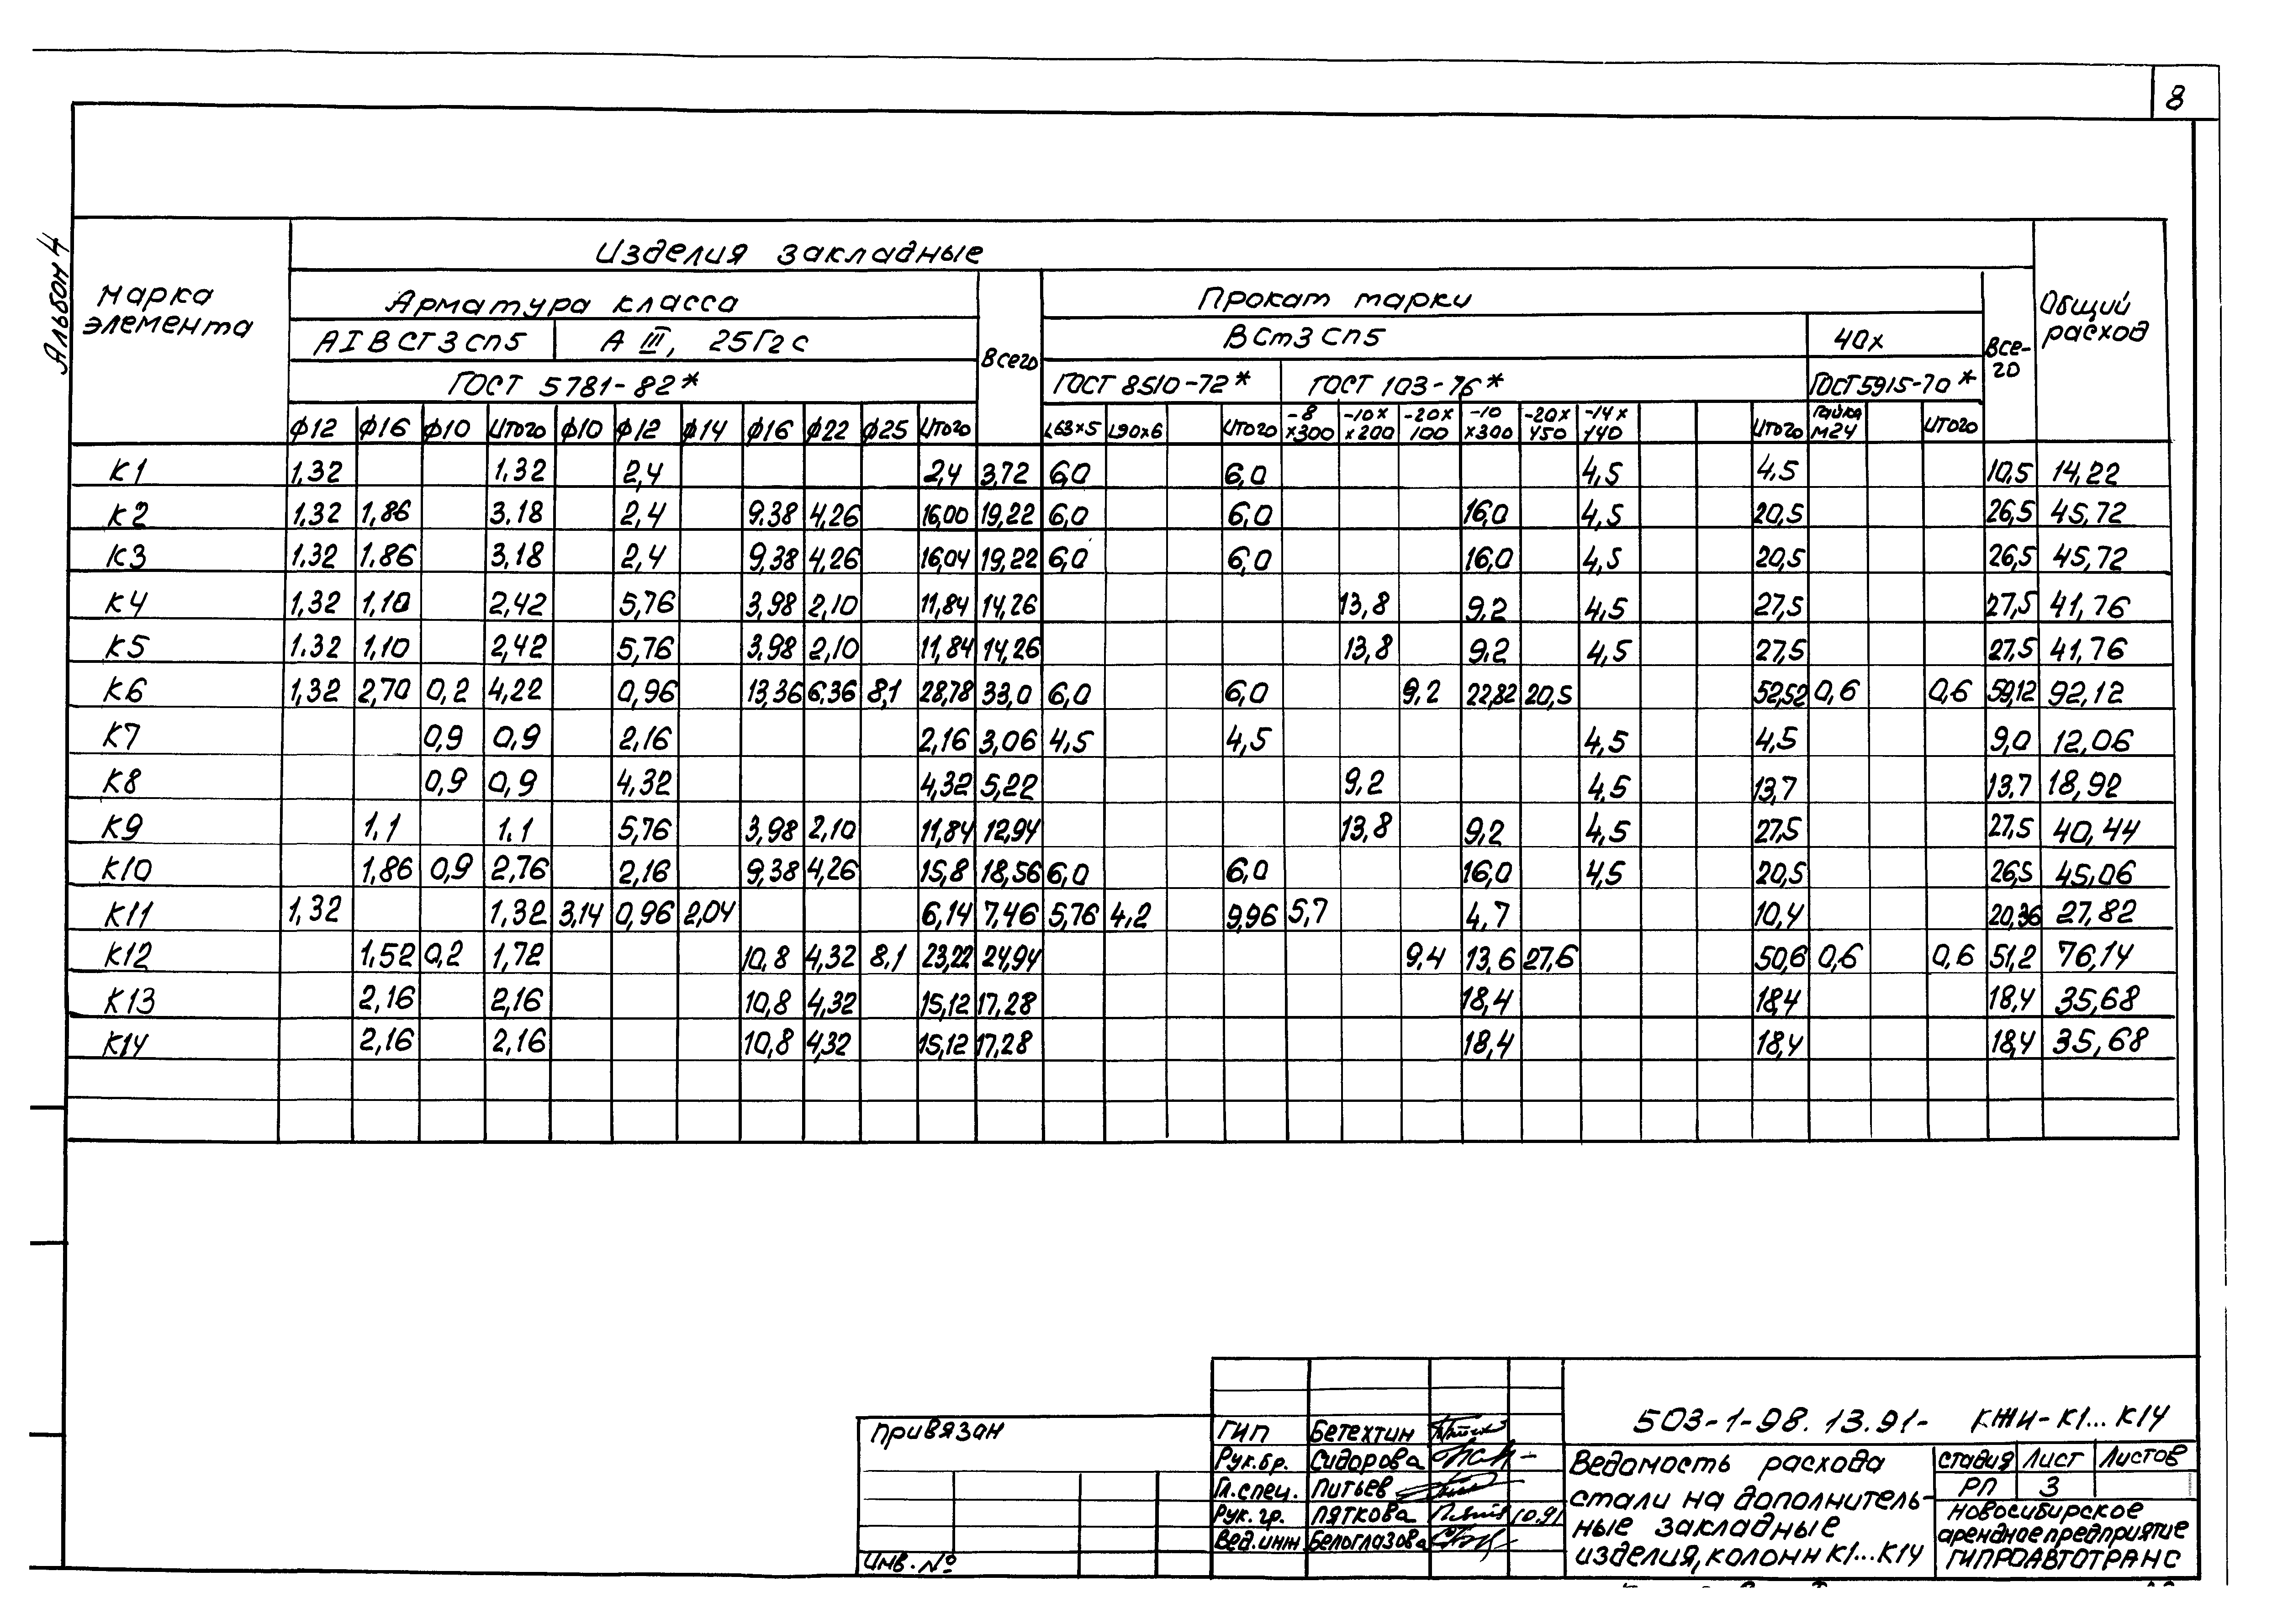 8
Альбом 4
Марка элемента
Изделия закладные
Общий расход
Арматура класса
Всего
Прокат марки
Все-го
АI ВСТ3сп5
А III, 25Г2с
ВСт3сп5
40х
ГОСТ 5781-82*
ГОСТ 8510-72*
ГОСТ 103-76*
ГОСТ5915-70*
ф12 ф16 ф10 Итого ф10 ф12 ф14 ф16 ф22 ф25 Итого L63х5 L90х6 Итого -8х300 -10хх200 -20х100 -10х300 -20х450 -14х140 Итого Гайка М24 Итого
К1 1,32 1,32 2,4 2,4 3,72 6,0 6,0 4,5 4,5 10,5 14,22
К2 1.32 1,86 3.18 2,4 9.38 4,26 16,00 19,22 6,0 6,0 16,0 4,5 20,5 26,5 45,72
К3 1.32 1.86 3,18 2,4 9,38 4,26 16,04 19,22 6,0 6,0 16,0 4,5 20,5 26,5 45,72
К4 1,32 1,10 2,42 5,76 3,98 2,10 11,84 14,26 13,8 9,2 4,5 27,5 27,5 41,76
К5 1.32 1,10 2,42 5,76 3,98 2,10 11,84 14,26 13,8 9,2 4,5 27,5 27,5 41,76
К6 1,32 2,70 0,2 4,22 0,96 13,36 6,36 8,1 28,78 33,0 6,0 6,0 9,2 22,82 20,5 52,52 0,6 0,6 59,12 92,12
К7 0,9 0,9 2,16 2,16 3,06 4,5 4,5 4,5 4,5 9,0 12,06
К8 0,9 0,9 4,32 4,32 5,22 9,2 4,5 13,7 13,7 18,92
К9 1,1 1.1 5,76 3,98 2,10 11,84 12,94 13,8 9,2 4,5 27,5 27,5 40,44
К10 1,86 0,9 2,76 2,16 9,38 4,26 15,8 18,56 6,0 6,0 16,0 4,5 20,5 26,5 45,06
К11 1,32 1,32 3,14 0,96 2,04 6,14 7,46 5,76 4,2 9,96 5,7 4,7 10,4 20,36 27,82
К12 1,52 0,2 1,72 10,8 4,32 8,1 23,22 24,94 9,4 13,6 27,6 50,6 0,6 0,6 51,2 76,14
К13 2,16 2,16 10,8 4,32 15,12 17,28 18,4 18,4 18,4 35,68
К14 2,16 2,16 10,8 4,32 15,12 17,28 18,4 18,4 18,4 35,68
Привязан
Инв. №
ГИП Бетехтин
Рук.бр. Сидорова
Гл.спец. Питьев
Рук. гр. Пяткова 10.91
Вед.инж Белоглазова
503-1-98.13.91- КЖИ-К1...К14
Ведомость расхода
стали на дополнитель-
ные закладные
изделия, колонн К1...К14
стадия Лист Листов
РП 3
Новосибирское
арендное предприятие
ГИПРОАВТОТРАНС